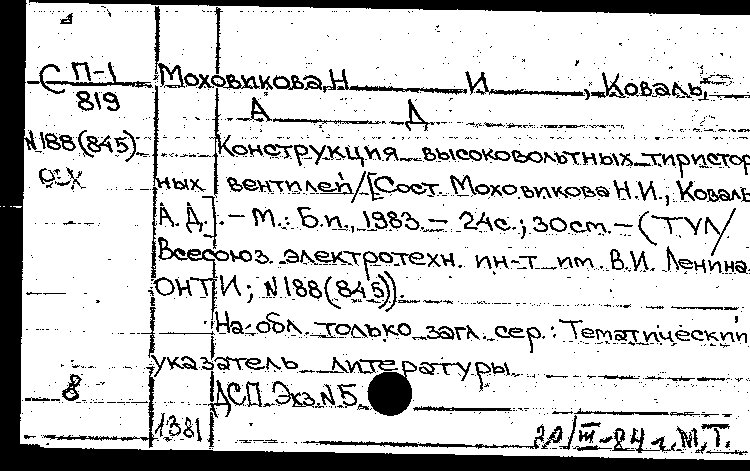 С П-1 Моховикова, Н И , Коваль,
819 А Д
N188(845) Конструкция высоковольтных тиристор
ОСХ ных вентилей/[Сост. Моховикова Н.И., Коваль
А.Д.]. – М.: Б.и., 1983. – 24с.; 30см. – (ТУЛ/
Всесоюз. электротехн. ин-т им. В.И. Ленина.
ОНТИ; N188(845)).
На обл. только загл. сер.: Тематический
указатель литературы.
8 ДСП. Экз.N5
1381 20/III-84 г. М.Т.